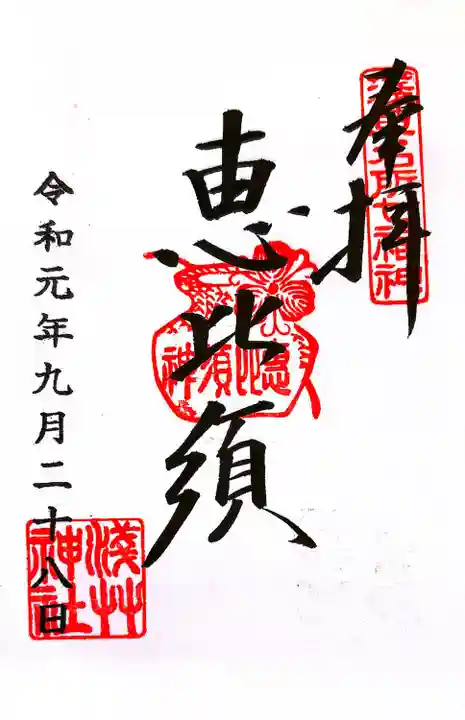 奉拝
浅草名所七福神
恵比須
恵比須神
令和元年九月二十八日
浅草神社